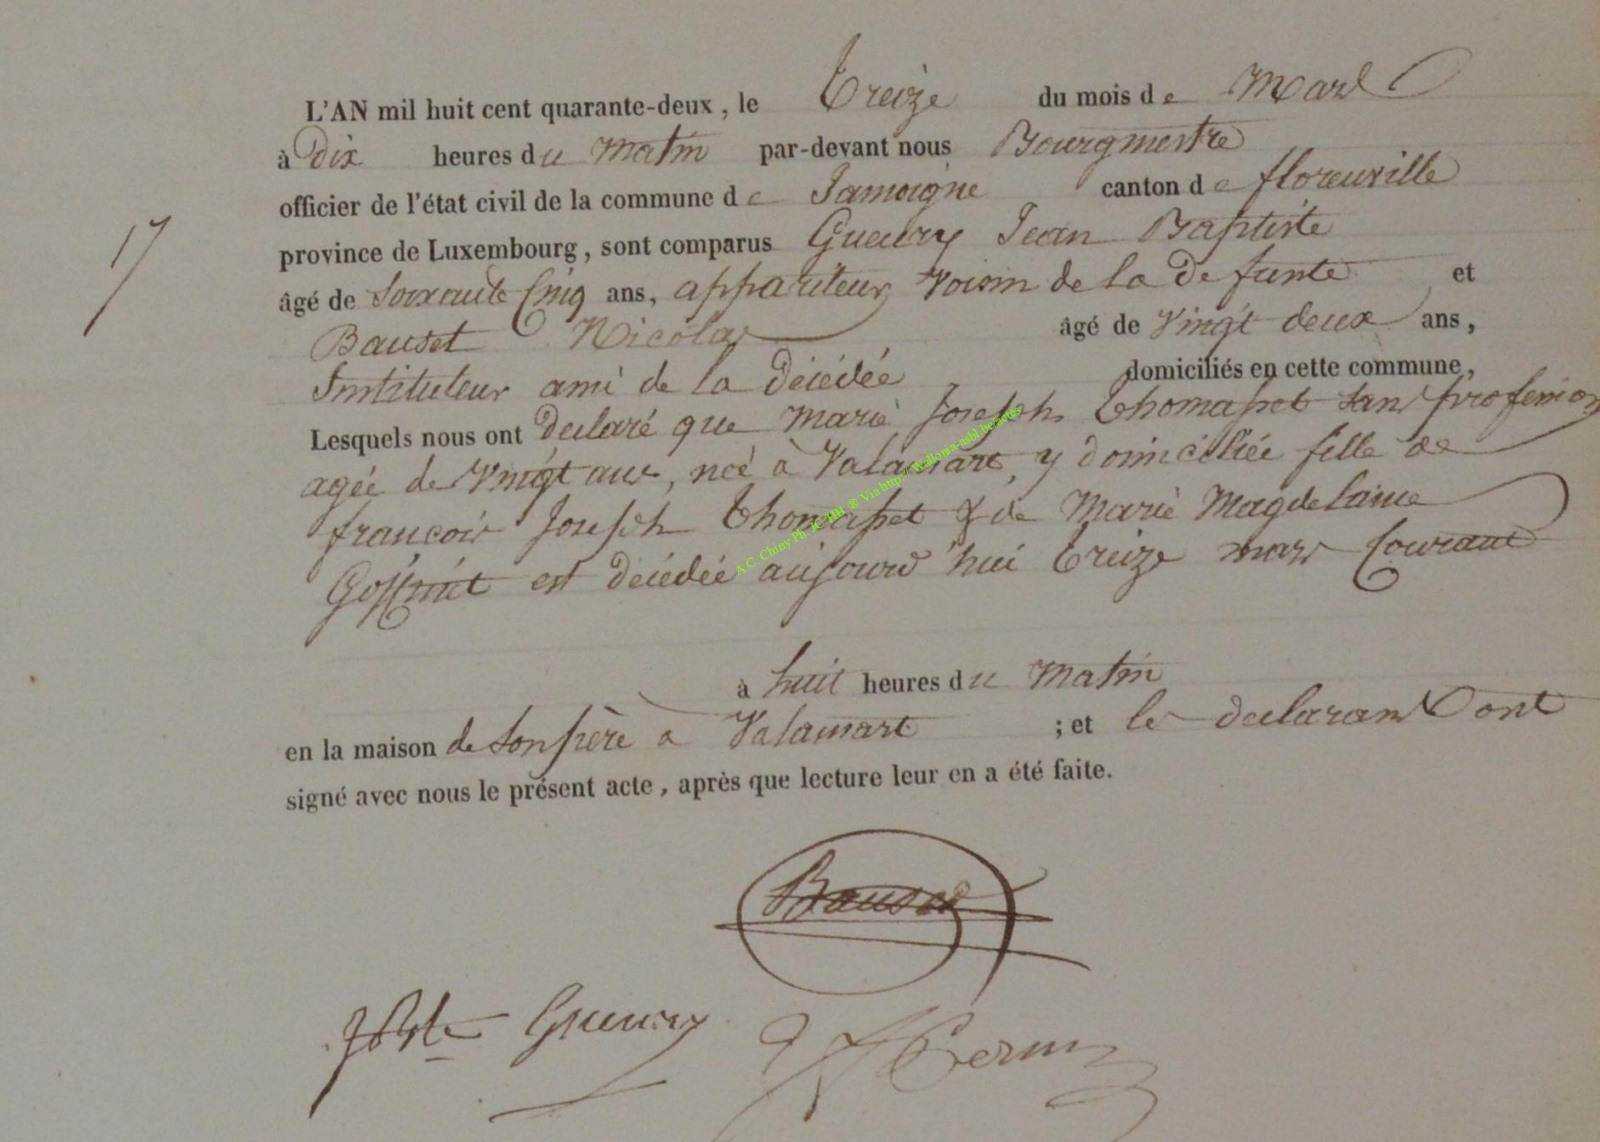 L'AN mil huit cent quarante-deux, le Treize du mois de Mars
à Dix heures du Matin par-devant nous Bourgmestre
officier de l'état civil de la commune de Jamoigne canton de florenville
province de Luxembourg, sont comparus Gueury Jean Baptiste
17
âgé de Soixante Cinq ans, appariteur, Voisin de la Defunte et
Bauset Nicolas âgé de Vingt deux ans,
Instituteur ami de la Décédée domiciliés en cette commune,
Lesquels nous ont declaré que Marie Joseph Thomasset sans profession
agée de Vingt ans, née à Valansart, y domiciliée fille de
françois Joseph Thomasset & de Marie Magdelaine
Goffinet est décédée aujourd'hui treize mars Courant
à huit heures du Matin
en la maison de son père a Valansart ; et les declarans ont
signé avec nous le présent acte, après que lecture leur en a été faite.
Bauset
JBte Gueury